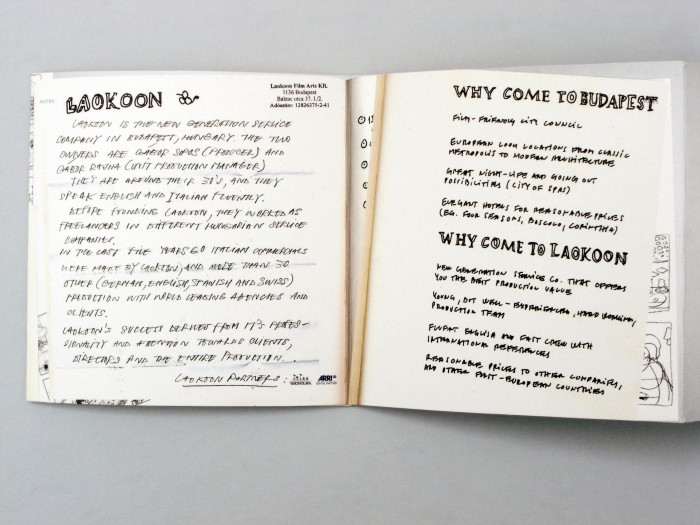 LAOKOON
Laokoon Film Arts Kft.
1136 Budapest
Balzac utca 37. 1/2.
Adószám: 12826375-2-41
LAOKOON IS THE NEW GENERATION SERVICE
COMPANY IN BUDAPEST, HUNGARY THE TWO
OWNERS ARE GABOR SIPOS (PRODUCER) AND
GABOR RAJNA (UNIT PRODUCTION MANAGER)
THEY ARE AROUND THEIR 30'S, AND THEY
SPEAK ENGLISH AND ITALIAN FLUENTLY.
BEFORE FOUNDING LAOKOON, THEY WORKED AS
FREELANCERS IN DIFFERENT HUNGARIAN SERVICE
COMPANIES.
IN THE LAST FIVE YEARS 60 ITALIAN COMMERCIALS
WERE MADE BY LAOKOON, AND MORE THAN 30
OTHER (GERMAN, ENGLISH, SPANISH AND SWISS)
PRODUCTION WITH WORLD LEADING AGENCIES AND
CLIENTS.
LAOKOON'S SUCCESS DERIVED FROM IT'S PROFES-
SIONALITY AND ATTENTION TOWARDS CLIENTS,
DIRECTORS AND THE ENTIRE PRODUCTION...
LAOKOON PARTNERS:
ARRI
WHY COME TO BUDAPEST
FILM-FRIENDLY CITY COUNCIL
EUROPEAN LOOK LOCATIONS FROM CLASSIC
METROPOLIS TO MODERN ARCHITECTURE
GREAT NIGHT-LIFE AND GOING OUT
POSSIBILITIES (CITY OF SPAS)
ELEGANT HOTELS FOR REASONABLE PRICES
(EG. FOUR SEASONS, BOSCOLO, CORINTHIA)
WHY COME TO LAOKOON
NEW GENERATION SERVICE CO. THAT OFFERS
YOU THE BEST PRODUCTION VALUE
YOUNG, BUT WELL-EXPERIENCED, HARD WORKING,
PRODUCTION TEAM
FLUENT ENGLISH AND FAST CREW WITH
INTERNATIONAL REFERENCES
REASONABLE PRICES TO OTHER COMPANIES,
AND OTHER EAST-EUROPEAN COUNTRIES